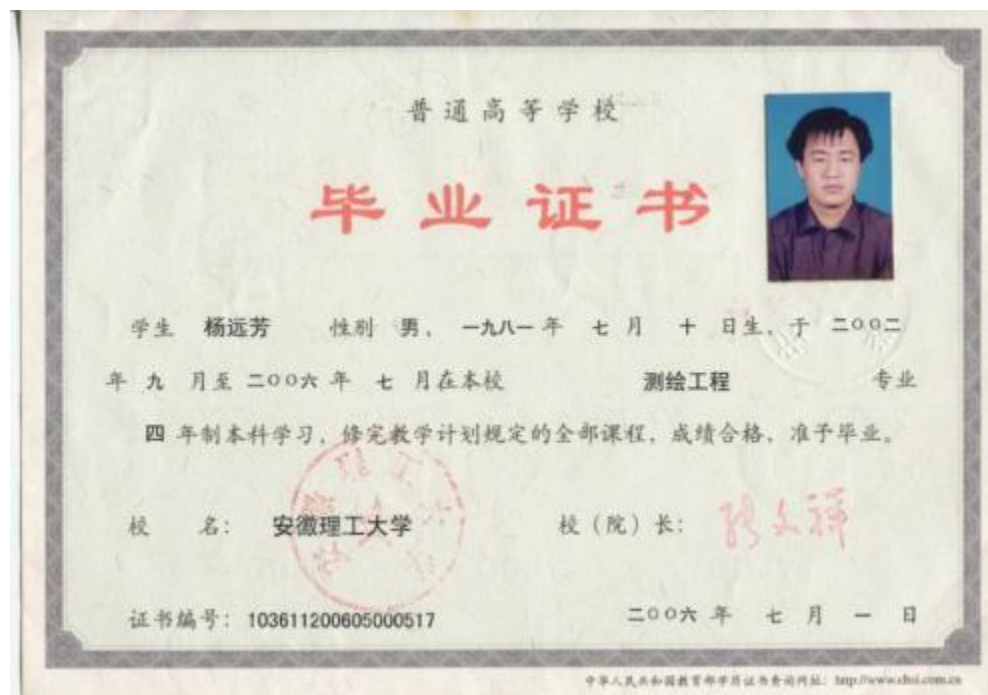 普通高等学校
毕业证书
学生 杨远芳 性别 男，一九八一年 七月 十日生，于 二〇〇二
年 九 月至 二〇〇六 年 七 月在本校 测绘工程 专业
四 年制本科学习，修完教学计划规定的全部课程，成绩合格，准予毕业。
校 名： 安徽理工大学 校（院）长：
证书编号：103611200605000517 二〇〇六 年 七 月 一 日
中华人民共和国教育部学历证书查询网址：http://www.chsi.com.cn